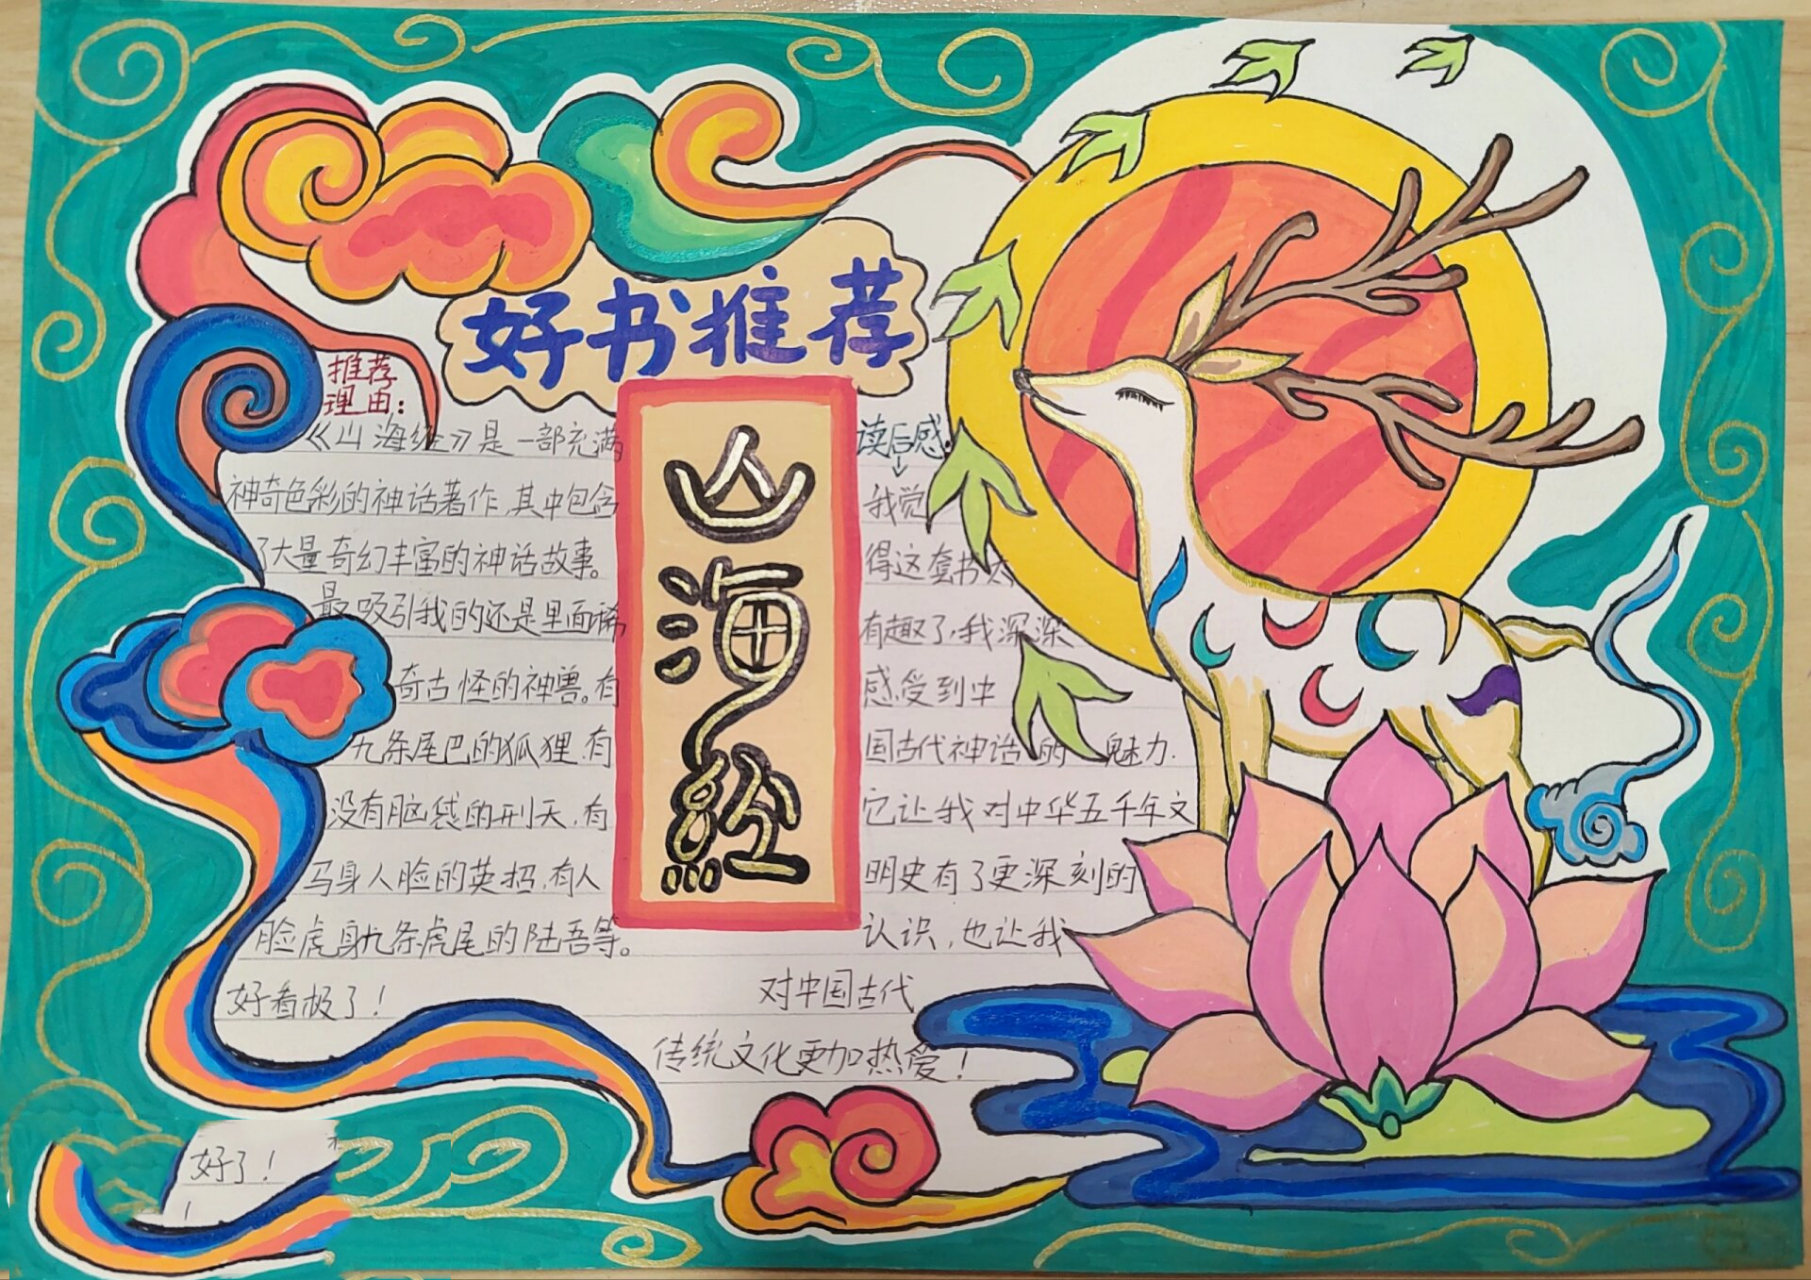 好书推荐
山海经
推荐
理由：
《山海经》是一部充满
神奇色彩的神话著作,其中包含
了大量奇幻丰富的神话故事。
最吸引我的还是里面稀
奇古怪的神兽。有
九条尾巴的狐狸,有
没有脑袋的刑天,有
马身人脸的英招,有人
脸虎身九条虎尾的陆吾等。
好看极了！
读后感:
我觉
得这套书太
有趣了,我深深
感受到中
国古代神话的魅力.
它让我对中华五千年文
明史有了更深刻的
认识,也让我
对中国古代
传统文化更加热爱！
好了！